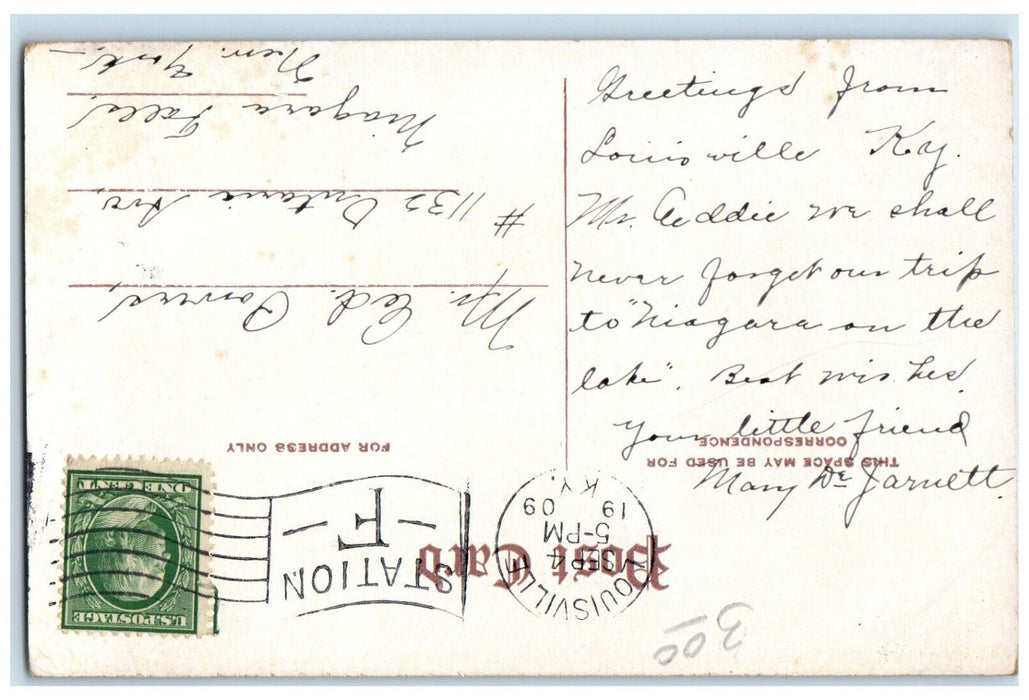 Greetings from
Louisville Ky.
Mr. Eddie we shall
never forget our trip
to "Niagara on the
lake". Best wishes.
Your little friend
Mary De Jarnett.
THIS SPACE MAY BE USED FOR
CORRESPONDENCE
Post Card
FOR ADDRESS ONLY
LOUISVILLE
SEP 4
5-PM
19 09
KY.
STATION
-F-
U.S. POSTAGE
ONE CENT
Mr. Ed. Powers,
# 1132 Ontario Ave,
Niagara Falls,
New York.
300